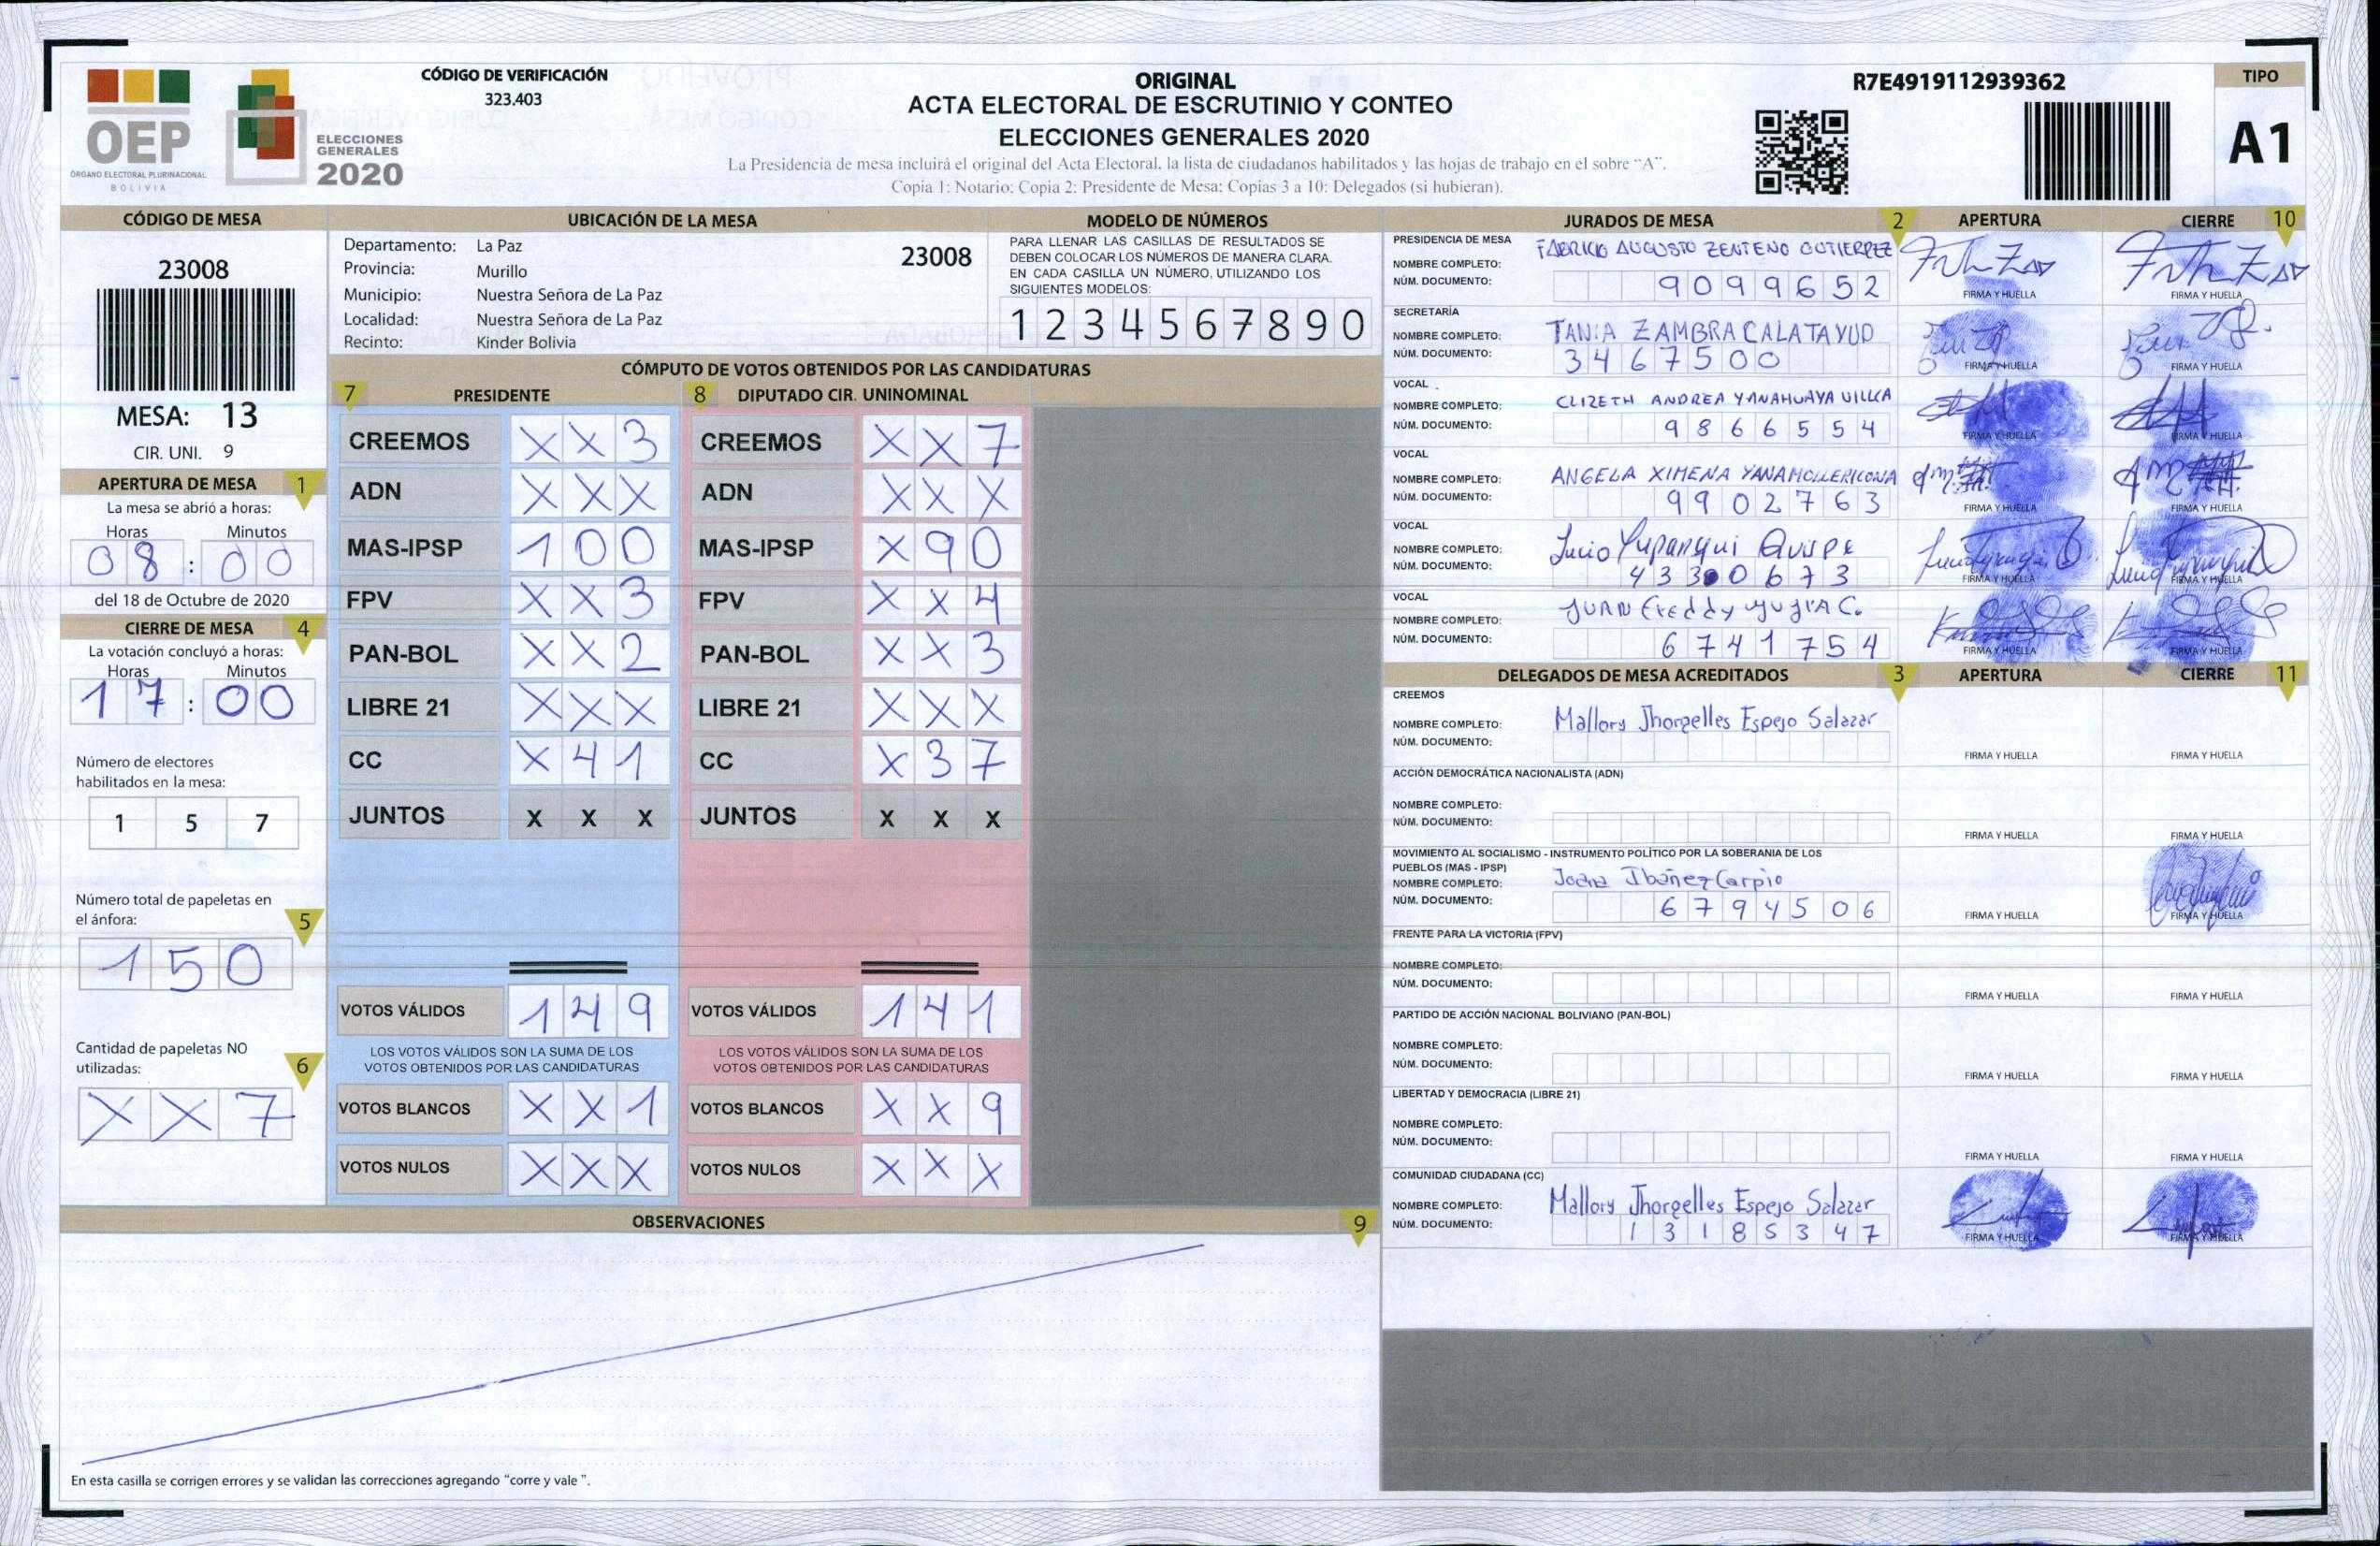 OEP
ÓRGANO ELECTORAL PLURINACIONAL
BOLIVIA
ELECCIONES
GENERALES
2020
CÓDIGO DE VERIFICACIÓN
323.403
ORIGINAL
ACTA ELECTORAL DE ESCRUTINIO Y CONTEO
ELECCIONES GENERALES 2020
La Presidencia de mesa incluirá el original del Acta Electoral, la lista de ciudadanos habilitados y las hojas de trabajo en el sobre "A".
Copia 1: Notario; Copia 2: Presidente de Mesa; Copias 3 a 10: Delegados (si hubieran).
R7E4919112939362
TIPO
A1
CÓDIGO DE MESA
23008
MESA: 13
CIR. UNI. 9
APERTURA DE MESA 1
La mesa se abrió a horas:
Horas Minutos
08 : 00
del 18 de Octubre de 2020
CIERRE DE MESA 4
La votación concluyó a horas:
Horas Minutos
17 : 00
Número de electores
habilitados en la mesa:
1 5 7
Número total de papeletas en
el ánfora: 5
1 5 0
Cantidad de papeletas NO
utilizadas: 6
X X 7
UBICACIÓN DE LA MESA
Departamento: La Paz 23008
Provincia: Murillo
Municipio: Nuestra Señora de La Paz
Localidad: Nuestra Señora de La Paz
Recinto: Kinder Bolivia
MODELO DE NÚMEROS
PARA LLENAR LAS CASILLAS DE RESULTADOS SE
DEBEN COLOCAR LOS NÚMEROS DE MANERA CLARA.
EN CADA CASILLA UN NÚMERO, UTILIZANDO LOS
SIGUIENTES MODELOS:
1 2 3 4 5 6 7 8 9 0
CÓMPUTO DE VOTOS OBTENIDOS POR LAS CANDIDATURAS
7 PRESIDENTE 8 DIPUTADO CIR. UNINOMINAL
CREEMOS X X 3 CREEMOS X X 7
ADN X X X ADN X X X
MAS-IPSP 1 0 0 MAS-IPSP X 9 0
FPV X X 3 FPV X X 4
PAN-BOL X X 2 PAN-BOL X X 3
LIBRE 21 X X X LIBRE 21 X X X
CC X 4 1 CC X 3 7
JUNTOS X X X JUNTOS X X X
VOTOS VÁLIDOS 1 4 9 VOTOS VÁLIDOS 1 4 1
LOS VOTOS VÁLIDOS SON LA SUMA DE LOS LOS VOTOS VÁLIDOS SON LA SUMA DE LOS
VOTOS OBTENIDOS POR LAS CANDIDATURAS VOTOS OBTENIDOS POR LAS CANDIDATURAS
VOTOS BLANCOS X X 1 VOTOS BLANCOS X X 9
VOTOS NULOS X X X VOTOS NULOS X X X
OBSERVACIONES 9
En esta casilla se corrigen errores y se validan las correcciones agregando "corre y vale ".
JURADOS DE MESA 2 APERTURA CIERRE 10
PRESIDENCIA DE MESA
NOMBRE COMPLETO: FABRICIO AUGUSTO ZENTENO GUTIERREZ
NÚM. DOCUMENTO: 9099652
FIRMA Y HUELLA FIRMA Y HUELLA
SECRETARÍA
NOMBRE COMPLETO: TANIA ZAMBRA CALATAYUD
NÚM. DOCUMENTO: 3467500
FIRMA Y HUELLA FIRMA Y HUELLA
VOCAL
NOMBRE COMPLETO: CLIZETH ANDREA YANAHUAYA VILLCA
NÚM. DOCUMENTO: 9866554
FIRMA Y HUELLA FIRMA Y HUELLA
VOCAL
NOMBRE COMPLETO: ANGELA XIMENA YANAMOLLERICONA
NÚM. DOCUMENTO: 9902763
FIRMA Y HUELLA FIRMA Y HUELLA
VOCAL
NOMBRE COMPLETO: Lucio Yupanqui Quispe
NÚM. DOCUMENTO: 43300673
FIRMA Y HUELLA FIRMA Y HUELLA
VOCAL
NOMBRE COMPLETO: JUAN Freddy C.
NÚM. DOCUMENTO: 6741754
FIRMA Y HUELLA FIRMA Y HUELLA
DELEGADOS DE MESA ACREDITADOS 3 APERTURA CIERRE 11
CREEMOS
NOMBRE COMPLETO: Mallory Jhorgelles Espejo Salazar
NÚM. DOCUMENTO:
FIRMA Y HUELLA FIRMA Y HUELLA
ACCIÓN DEMOCRÁTICA NACIONALISTA (ADN)
NOMBRE COMPLETO:
NÚM. DOCUMENTO:
FIRMA Y HUELLA FIRMA Y HUELLA
MOVIMIENTO AL SOCIALISMO - INSTRUMENTO POLÍTICO POR LA SOBERANIA DE LOS
PUEBLOS (MAS - IPSP)
NOMBRE COMPLETO: Joana Ibañez Carpio
NÚM. DOCUMENTO: 6794506
FIRMA Y HUELLA FIRMA Y HUELLA
FRENTE PARA LA VICTORIA (FPV)
NOMBRE COMPLETO:
NÚM. DOCUMENTO:
FIRMA Y HUELLA FIRMA Y HUELLA
PARTIDO DE ACCIÓN NACIONAL BOLIVIANO (PAN-BOL)
NOMBRE COMPLETO:
NÚM. DOCUMENTO:
FIRMA Y HUELLA FIRMA Y HUELLA
LIBERTAD Y DEMOCRACIA (LIBRE 21)
NOMBRE COMPLETO:
NÚM. DOCUMENTO:
FIRMA Y HUELLA FIRMA Y HUELLA
COMUNIDAD CIUDADANA (CC)
NOMBRE COMPLETO: Mallory Jhorgelles Espejo Salazar
NÚM. DOCUMENTO: 13185347
FIRMA Y HUELLA FIRMA Y HUELLA